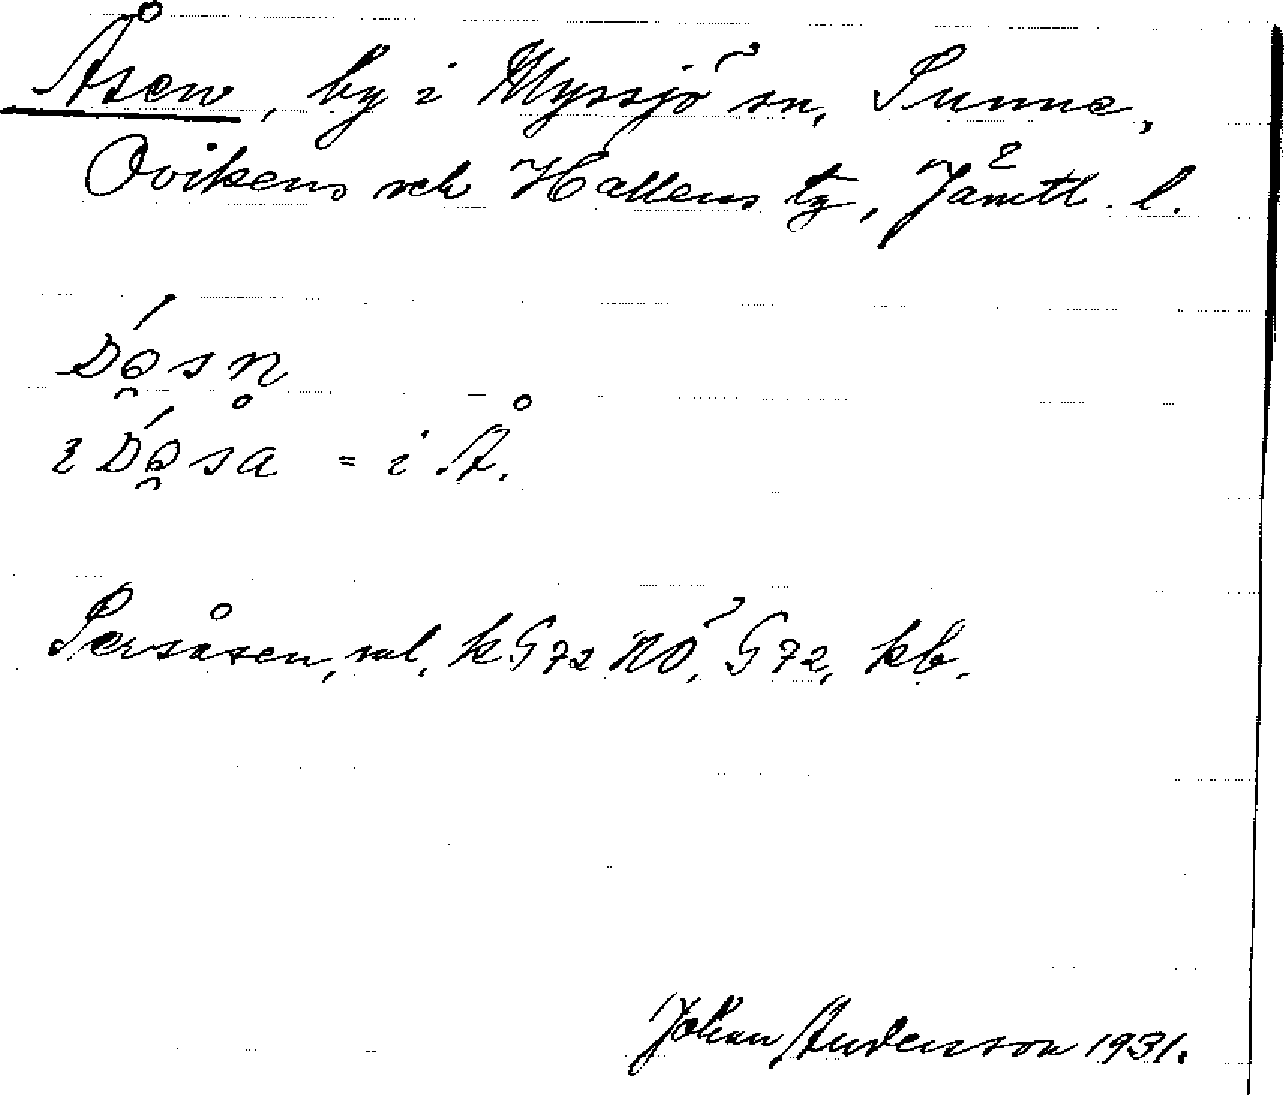 Åsen, by i Myssjö sn, Sunne,
Ovikens och Hallens tg, Jämtl. l.
i = i Å.
Persåsen, ml, k G 72 NO, G 72, kb.
Johan Andersson 1931.